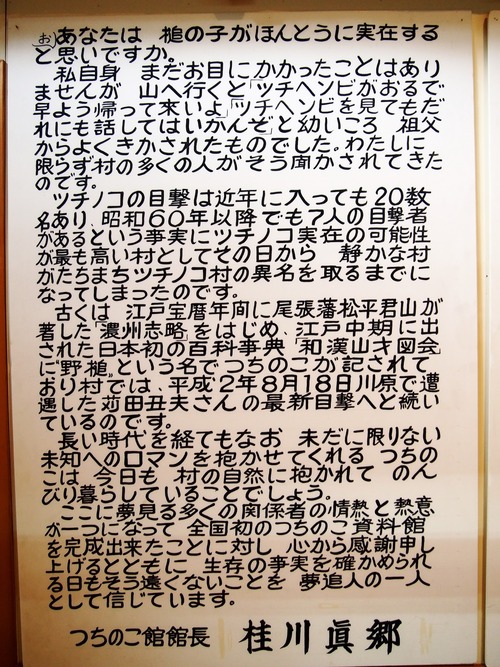 あなたは 槌の子がほんとうに実在する
とお思いですか。
私自身 まだお目にかかったことはあり
ませんが 山へ行くと「ツチヘンビがおるで
早よう帰って来いよ」「ツチヘンビを見てもだ
れにも話してはいかんぞ」と幼いころ 祖父
からよくきかされたものでした。わたしに
限らず村の多くの人がそう聞かされてきた
のです。
ツチノコの目撃は近年に入っても20数
名あり、昭和60年以降でも7人の目撃者
があるという事実にツチノコ実在の可能性
が最も高い村としてその日から 静かな村
がたちまちツチノコ村の異名を取るまでに
なってしまったのです。
古くは 江戸宝暦年間に尾張藩松平君山が
著した「濃州志略」をはじめ、江戸中期に出
された日本初の百科事典「和漢山才図会」
に"野槌"という名でつちのこが記されて
おり村では、平成2年8月18日川原で遭
遇した苅田丑夫さんの最新目撃へと続い
ているのです。
長い時代を経てもなお 未だに限りない
未知へのロマンを抱かせてくれる つちの
こは 今日も 村の自然に抱かれて のん
びり暮らしていることでしょう。
ここに夢見る多くの関係者の情熱と熱意
が一つになって 全国初のつちのこ資料館
を完成出来たことに対し 心から感謝申し
上げるとともに 生存の事実を確かめられ
る日もそう遠くないことを 夢追人の一人
として信じています。
つちのこ館館長 桂川眞郷